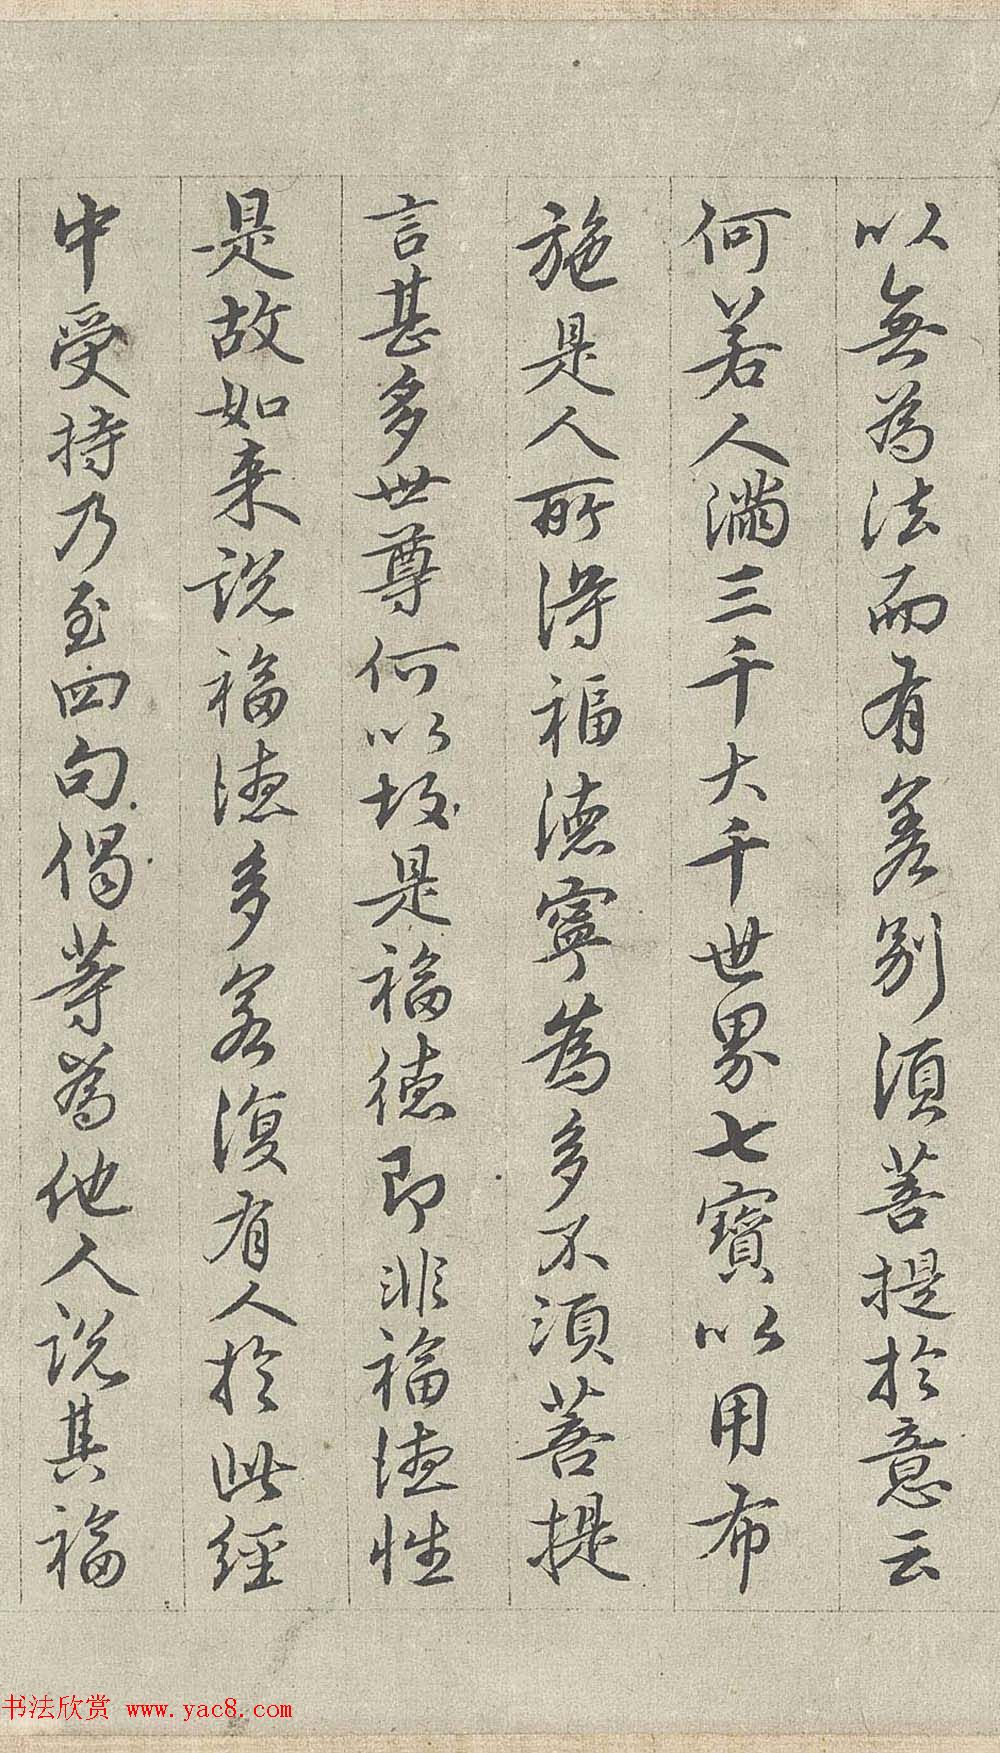 以無為法而有差別須菩提於意云
何若人滿三千大千世界七寶以用布
施是人所得福德寧為多不須菩提
言甚多世尊何以故是福德即非福德性
是故如来說福德多若復有人於此經
中受持乃至四句偈等為他人說其福
书法欣赏 www.yac8.com